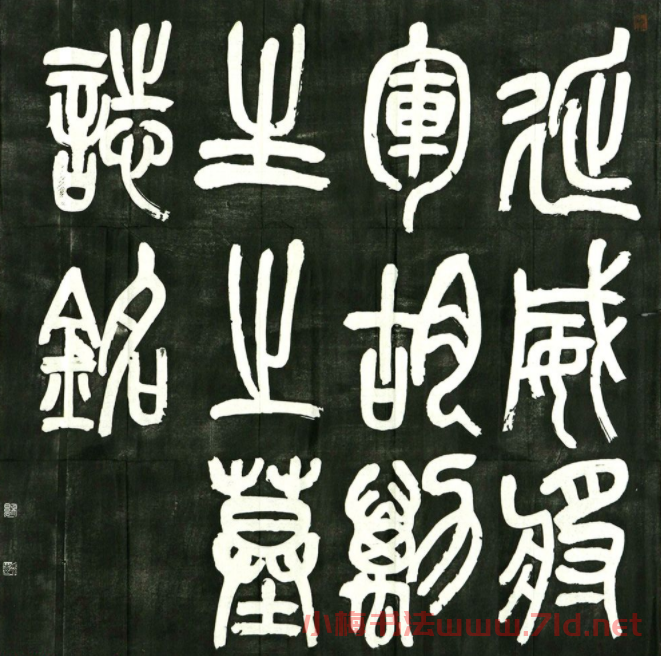 延威將
軍胡勱
生之墓
誌銘
小梅书法www.7ld.net